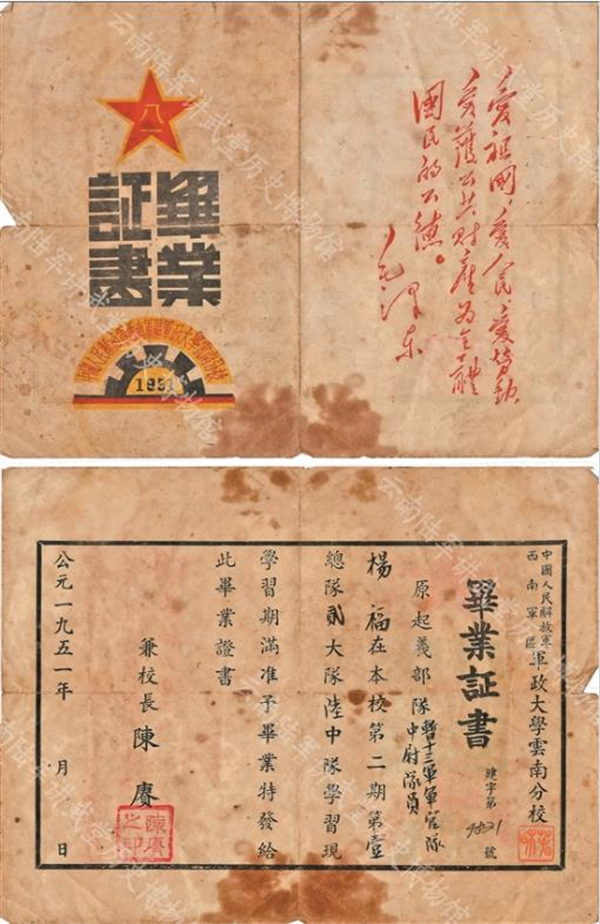 愛祖國，愛人民，愛勞動，
愛護公共財產為全體
國民的公德。
毛澤东
八一
畢業
証書
1951
中國人民解放軍
西南軍區
軍政大學雲南分校
畢業証書
建字第9821號
原起義部隊暫十三軍軍官隊
中尉隊員
楊福在本校第二期第壹
總隊貳大隊陸中隊學習現
學習期滿准予畢業特發給
此畢業證書
兼校長陳賡
陳賡之印
公元一九五一年 月 日
云南陆军讲武堂历史博物馆